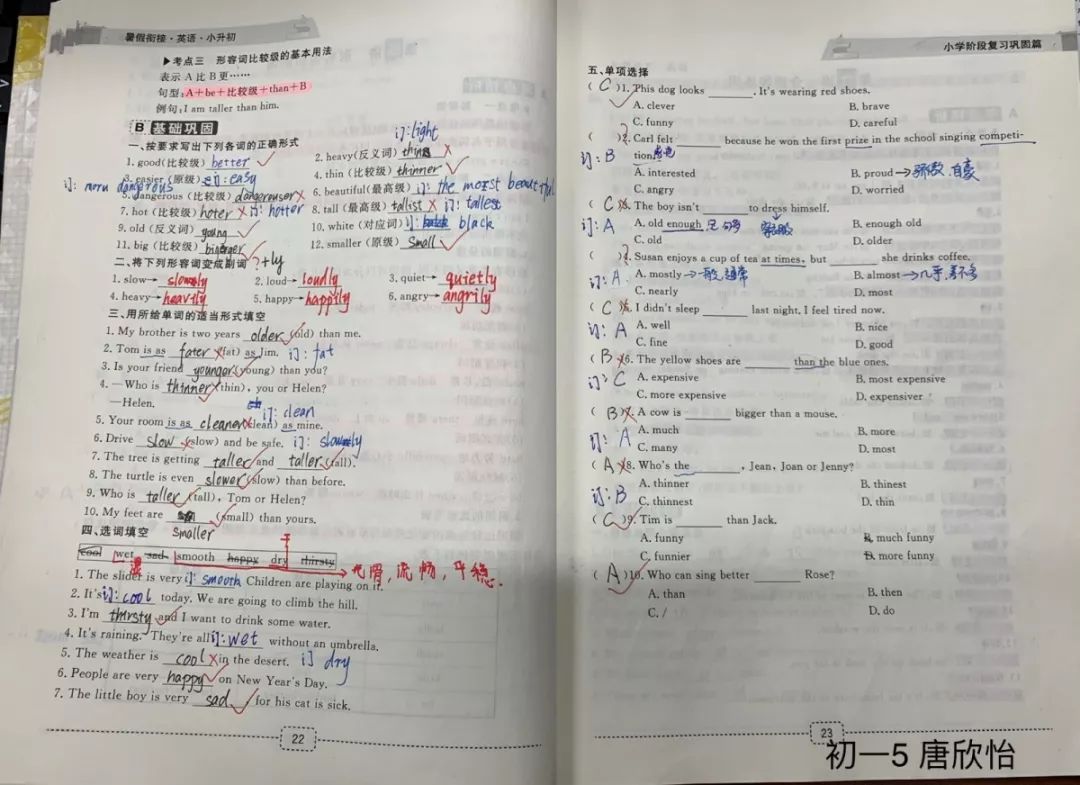 暑假衔接·英语·小升初
▶考点三 形容词比较级的基本用法
表示 A 比 B 更……
句型:A+be+比较级+than+B
例句:I am taller than him.
B 基础巩固
一、按要求写出下列各词的正确形式
订:light
1. good(比较级) better 2. heavy(反义词)
3. easier(原级) 订:easy 4. thin(比较级) thinner
订: more dangerous
5. dangerous(比较级) dangerouser 6. beautiful(最高级) 订: the most beautiful
7. hot(比较级) hoter 订: hotter 8. tall(最高级) tallist 订: tallest
9. old(反义词) young 10. white(对应词) 订: black
11. big(比较级) bigger 12. smaller(原级) small
二、将下列形容词变成副词 ?+ly
1. slow→ slowly 2. loud→ loudly 3. quiet→ quietly
4. heavy→ heavily 5. happy→ happily 6. angry→ angrily
三、用所给单词的适当形式填空
1. My brother is two years older (old) than me.
2. Tom is as fater (fat) as Jim. 订: fat
3. Is your friend younger (young) than you?
4. —Who is thinner (thin), you or Helen?
—Helen.
订: clean
5. Your room is as cleaner (clean) as mine.
6. Drive slow (slow) and be safe. 订: slowly
7. The tree is getting taller and taller (tall).
8. The turtle is even slower (slow) than before.
9. Who is taller (tall), Tom or Helen?
10. My feet are (small) than yours.
smaller
四、选词填空
cool wet sad smooth happy dry thirsty
湿 干 光滑,流畅,平稳.
1. The slider is very 订: smooth Children are playing on it.
2. It's 订: cool today. We are going to climb the hill.
3. I'm thirsty and I want to drink some water.
4. It's raining. They're all 订: wet without an umbrella.
5. The weather is cool in the desert. 订 dry
6. People are very happy on New Year's Day.
7. The little boy is very sad for his cat is sick.
22
小学阶段复习巩固篇
五、单项选择
( C )1. This dog looks ______. It's wearing red shoes.
A. clever B. brave
C. cute D. careful
( )2. Carl felt ______ because he won the first prize in the school singing competi-
订: B tion.
A. interested B. proud → 骄傲,自豪
C. angry D. worried
( C )3. The boy isn't ______ to dress himself.
订: A A. old enough 足够 穿衣服 B. enough old
C. old D. older
( )4. Susan enjoys a cup of tea at times, but ______ she drinks coffee.
订: A A. mostly → 一般,通常 B. almost → 几乎,差不多
C. nearly D. most
( C )5. I didn't sleep ______ last night. I feel tired now.
订: A A. well B. nice
C. fine D. good
( B )6. The yellow shoes are ______ than the blue ones.
订: C A. expensive B. most expensive
C. more expensive D. expensiver
( B )7. A cow is ______ bigger than a mouse.
订: A A. much B. more
C. many D. most
( A )8. Who's the ______, Jean, Joan or Jenny?
A. thinner B. thinest
订: B C. thinnest D. thin
( C )9. Tim is ______ than Jack.
A. funny B. much funny
C. funnier D. more funny
( A )10. Who can sing better ______ Rose?
A. than B. then
C. / D. do
23
初一5 唐欣怡